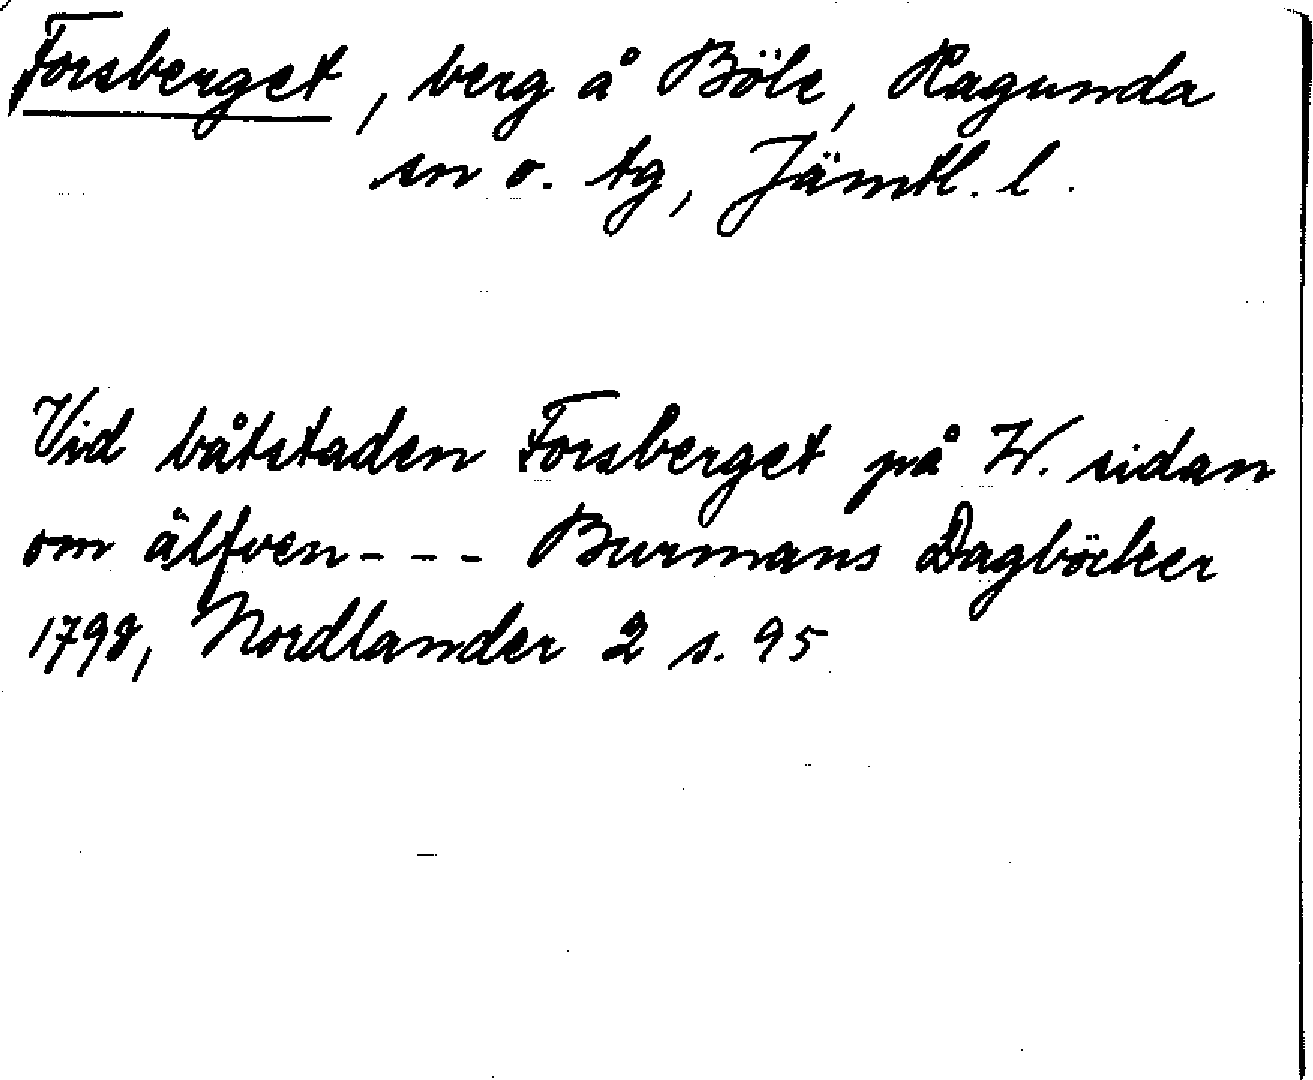 Forsberget, berg å Böle, Ragunda
sn o. tg, Jämtl. l.
Vid båtstaden Forsberget på W. sidan
om älfven - - - Burmans Dagböcker
1798, Nordlander 2 s. 95